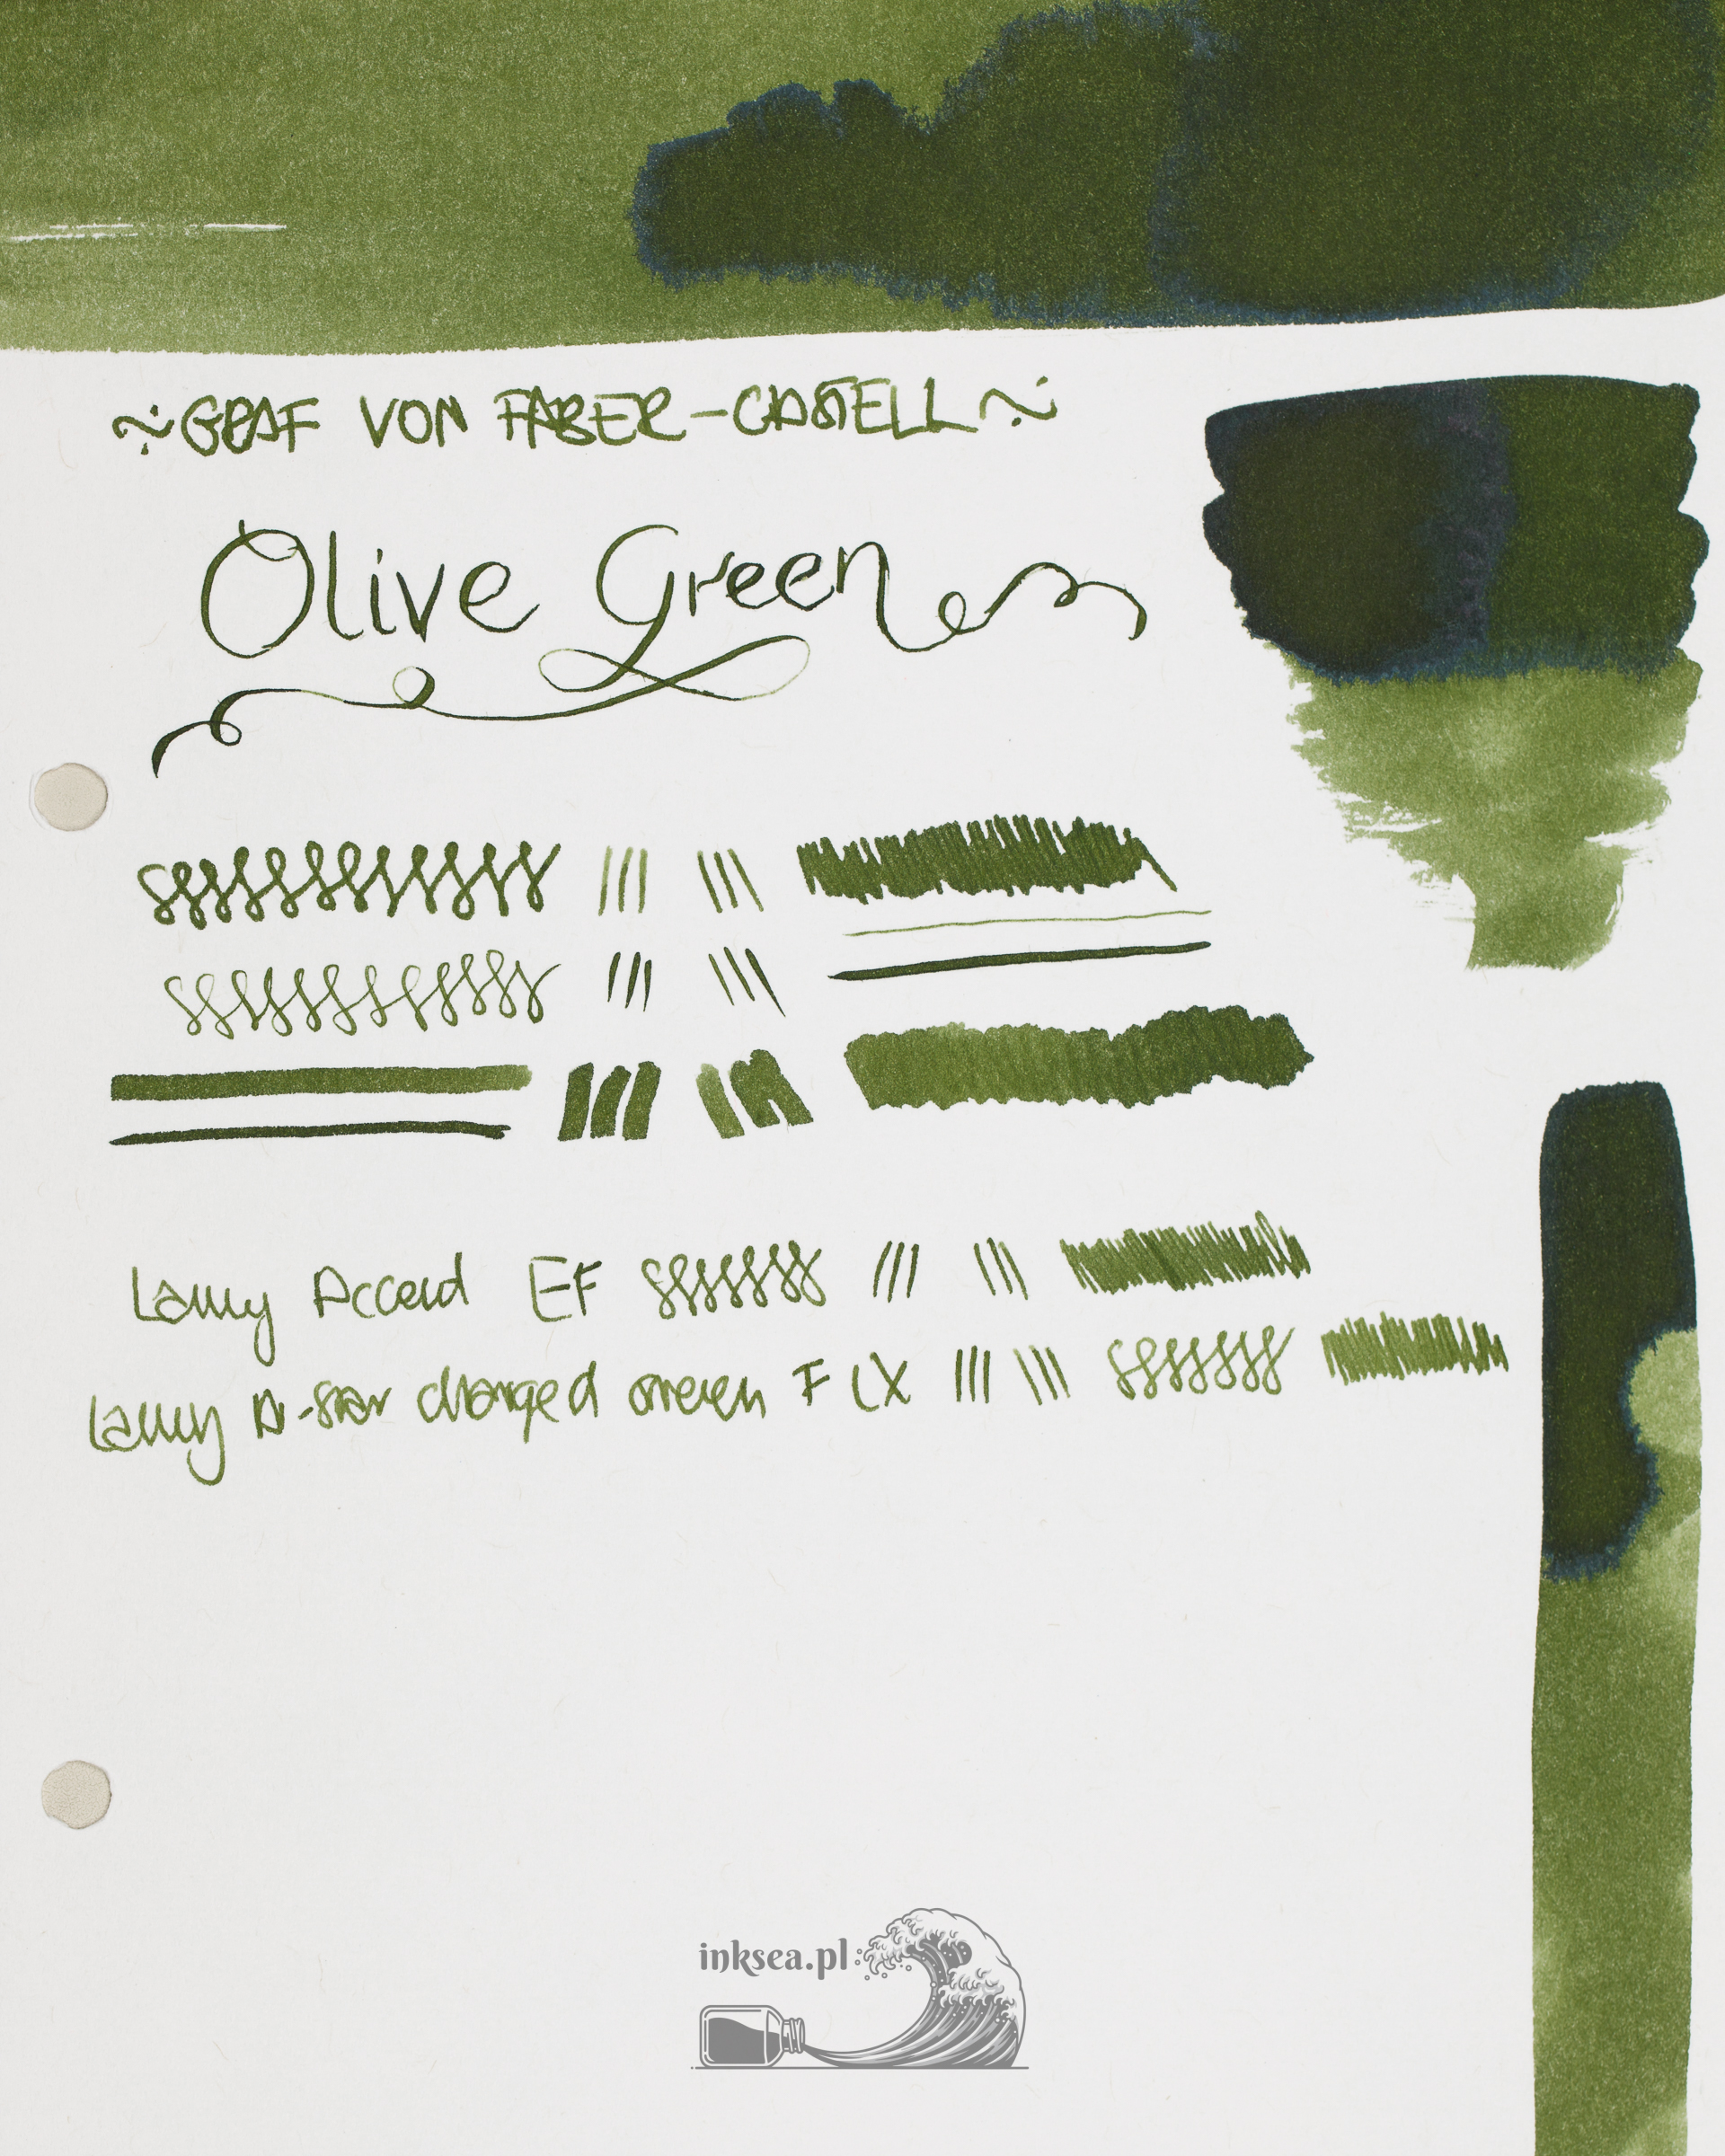 ~GRAF VON FABER-CASTELL~
Olive Green
Lamy Accent EF
Lamy Al-star charged green F LX
inksea.pl